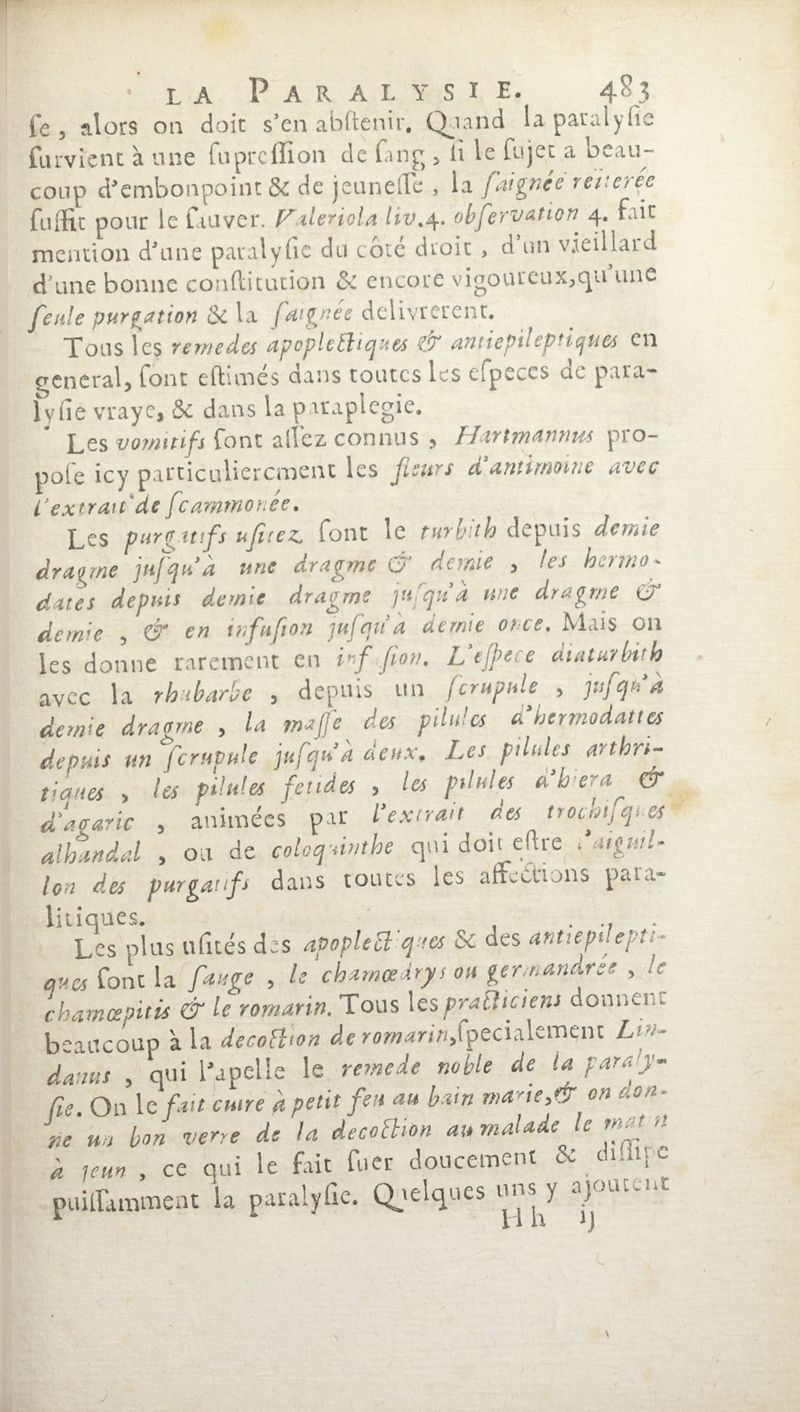 LA PARALYSIE. 483
ſe, alors on doit s'en abſtenir. Quand la paralyſie
ſurvient à une ſupreſſion de ſang, ſi le ſujet a beau-
coup d'embonpoint & de jeuneſſe, la ſaignée reiterée
ſuffit pour le ſauver. Valeriola liv.4. obſervation 4. fait
mention d'une paralyſie du côté droit, d'un vieillard
d'une bonne conſtitution & encore vigoureux, qu'une
ſeule purgation & la ſaignée delivrerent.
Tous les remedes apoplectiques & antiepileptiques en
general, ſont eſtimés dans toutes les eſpeces de para-
lyſie vraye, & dans la paraplegie.
Les vomitifs ſont aſſez connus, Hartmannus pro-
poſe icy particulierement les fleurs d'antimoine avec
l'extrait de ſcammonée.
Les purgatifs uſitez ſont le turbith depuis demie
dragme juſqu'à une dragme & demie, les hermo-
dates depuis demie dragme juſqu'à une dragme &
demie, & en infuſion juſqu'à demie once. Mais on
les donne rarement en infuſion. L'eſpece diaturbith
avec la rhubarbe, depuis un ſcrupule, juſqu'à
demie dragme, la maſſe des pilules d'hermodattes
depuis un ſcrupule juſqu'à deux. Les pilules arthri-
tiques, les pilules fetides, les pilules d'hiera &
d'agaric, animées par l'extrait des trochiſques
alhandal, ou de coloquinthe qui doit eſtre l'aiguil-
lon des purgatifs dans toutes les affections para-
litiques.
Les plus uſités des apoplectiques & des antiepilepti-
ques ſont la ſauge, le chamœdrys ou germandrée, le
chamœpitis & le romarin. Tous les practiciens donnent
beaucoup à la decoction de romarin, ſpecialement Lin-
danus, qui l'apelle le remede noble de la paraly-
ſie. On le fait cuire à petit feu au bain marie, & on don-
ne un bon verre de la decoction au malade le matin
à jeun, ce qui le fait ſuer doucement & diſſipe
puiſſamment la paralyſie. Quelques uns y ajoutent
Hh ij